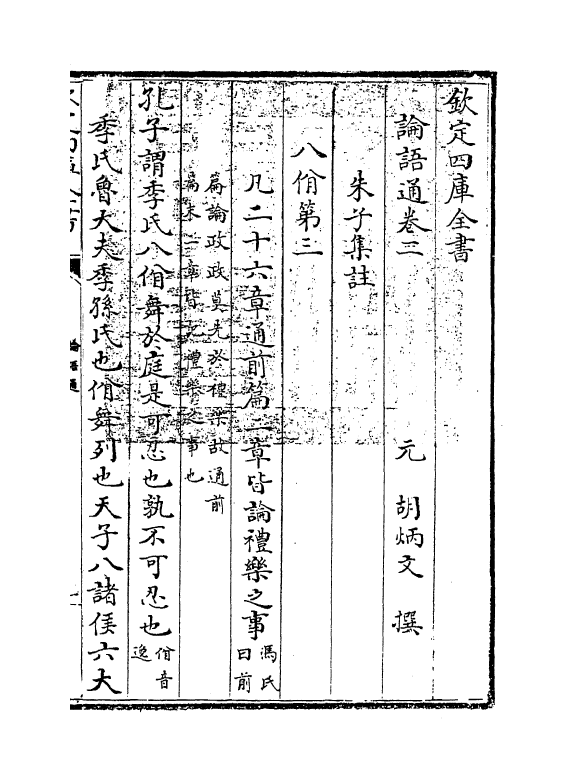 欽定四庫全書
論語通卷二　元　胡炳文　撰
朱子集註
八佾第三
凡二十六章通前篇二章皆論禮樂之事馮氏曰前
篇論政政莫先於禮樂故通前
篇末二章皆記禮樂之事也
孔子謂季氏八佾舞於庭是可忍也孰不可忍也佾音逸
季氏魯大夫季孫氏也佾舞列也天子八諸侯六大
論語通